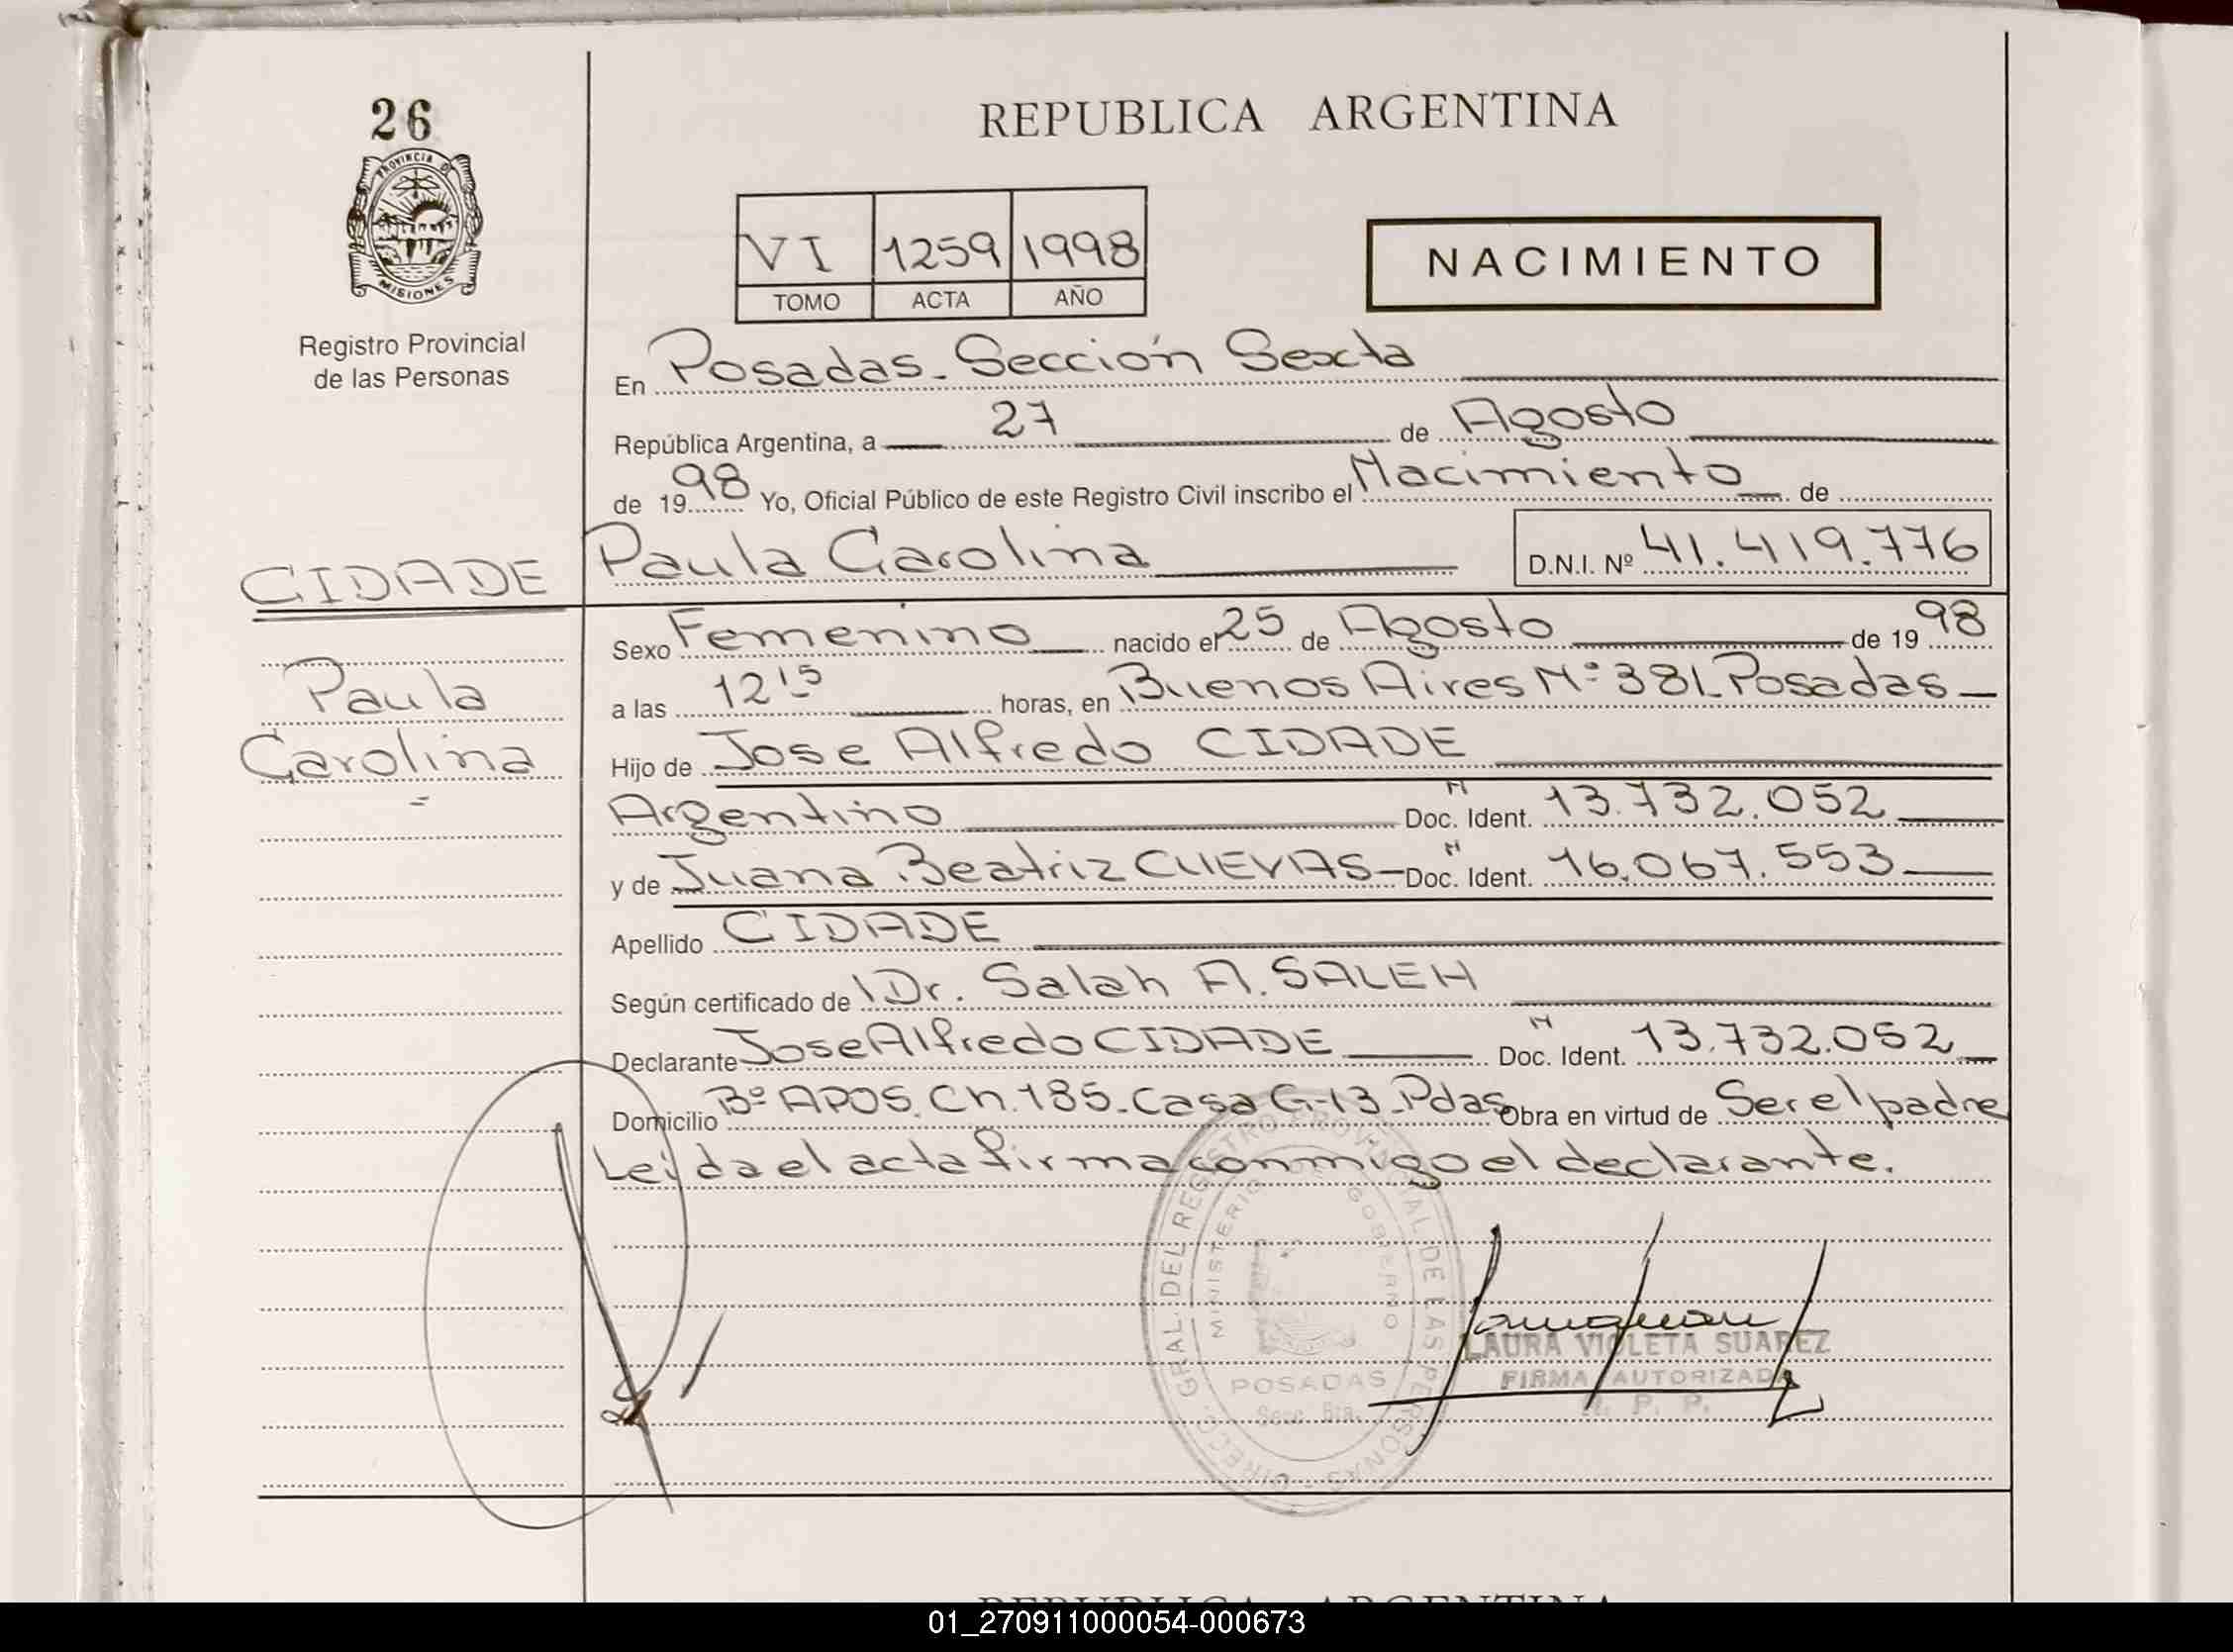 26
REPUBLICA ARGENTINA
PROVINCIA DE MISIONES
VI 1259 1998
TOMO ACTA AÑO
NACIMIENTO
Registro Provincial
de las Personas
En Posadas - Sección Sexta
República Argentina, a 27 de Agosto
de 1998 Yo, Oficial Público de este Registro Civil inscribo el Nacimiento de
CIDADE
Paula Carolina D.N.I. Nº 41.419.776
Sexo Femenino nacido el 25 de Agosto de 1998
Paula
Carolina
a las 12 15 horas, en Buenos Aires Nº 381 - Posadas
Hijo de Jose Alfredo CIDADE
Argentino Doc. N Ident. 13.732.052
y de Juana Beatriz CUEVAS - Doc. N Ident. 16.067.553
Apellido CIDADE
Según certificado de Dr. Salah A. SALEH
Declarante Jose Alfredo CIDADE Doc. N Ident. 13.732.052
Domicilio Bº APOS. Ch. 185 - Casa G-13 - Pdas Obra en virtud de Ser el padre
Leida el acta firma conmigo el declarante.
DIRECC. GRAL. DEL REGISTRO PROVINCIAL DE LAS PERSONAS
MINISTERIO GOBIERNO
POSADAS
LAURA VIOLETA SUAREZ
FIRMA AUTORIZADA
R. P. P.
REPUBLICA ARGENTINA
01_270911000054-000673